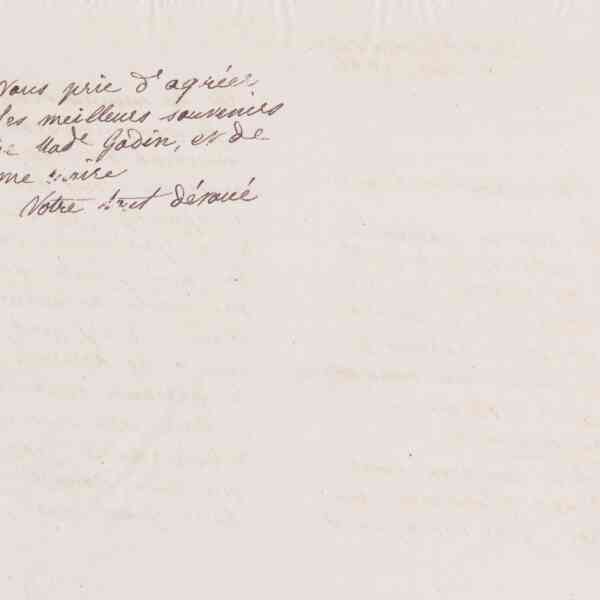 vous prie d'agréer
les meilleurs souvenirs
de Made Godin, et de
me
Votre tout dévoué